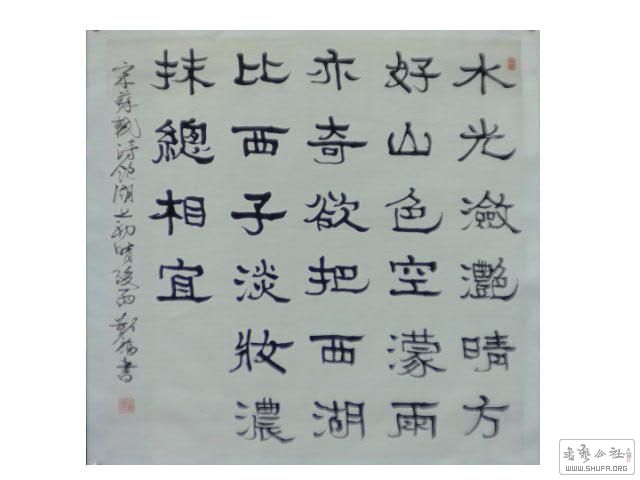 水光瀲灧晴方
好山色空濛雨
亦奇欲把西湖
比西子淡妝濃
抹總相宜
宋蘇軾詩飲湖上初晴後雨 書
書藝公社
WWW.SHUFA.ORG